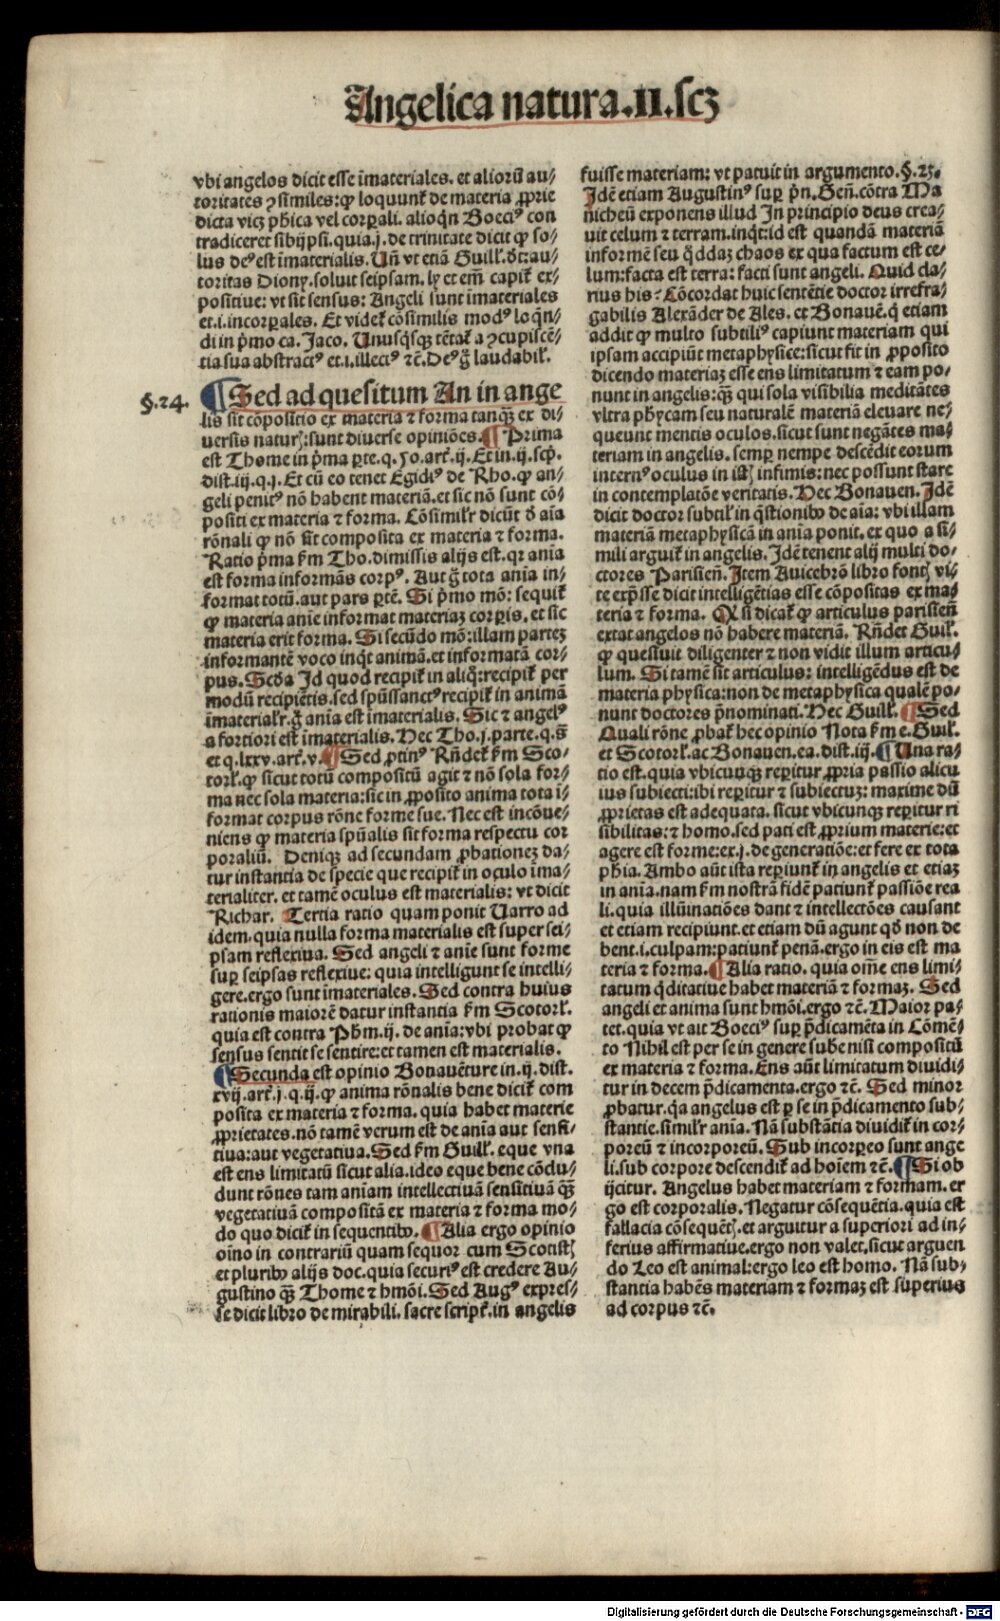 Angelica natura.II.scʒ
vbi angelos dicit esse īmateriales. et aliorū au⸗
toritates ⁊ similes: ꝙ loquunt᷑ de materia ꝓprie
dicta vicʒ phica vel corꝑali. alioqn̄ Boeciꝰ con
tradiceret sibijpsi. quia .j. de trinitate dicit ꝙ so⸗
lus deꝰ est īmaterialis. Un̄ vt etiā Guilł. dt: au⸗
toritas Diony. soluit seipsam. lʒ et em̄ capit᷑ ex⸗
positiue: vt sit sensus: Angeli sunt īmateriales
et .i. incorꝑales. Et videt᷑ cōsimilis modꝰ loqn̄⸗
di in p̄mo ca. Jaco. Unusqͥsqʒ tētat᷑ a ⁊cupiscē⸗
tia sua abstractꝰ et .i. illectꝰ ⁊c̄. Deꝰ g̊ laudabił.
§.24. ¶Sed ad quesitum An in ange
lis sit cōpositio ex materia ⁊ forma tanqʒ ex di⸗
uersis naturꝭ: sunt diuerse opiniōes. ¶Prima
est Thome in p̄ma ꝑte. q. 50. art᷑. ij. Et in .ij. scp̄.
dist. iij. q. j. Et cū eo tenet Egidiꝰ de Rho. ꝙ an⸗
geli penitꝰ nō habent materiā. et sic nō sunt cō⸗
positi ex materia ⁊ forma. Cōsimilr̄ dicūt d̄ aīa
rōnali ꝙ nō sit composita ex materia ⁊ forma.
Ratio p̄ma ẜm Tho. dimissis alijs est. qꝛ aīa
est forma informās corpꝰ. Aut g̊ tota aīa in⸗
format totū. aut pars ꝑtē. Si p̄mo mō: sequit᷑
ꝙ materia anīe informat materiaʒ corꝑis. et sic
materia erit forma. Si secūdo mō: illam parteʒ
informantē voco inqͥt animā. et informatā cor⸗
pus. Scd̄a Id quod recipit᷑ in aliqͦ: recipit᷑ per
modū recipiētis. sed spūssanctꝰ recipit᷑ in animā
īmaterialr̄. g̊ anīa est īmaterialis. Sic ⁊ angelꝰ
a fortiori est īmaterialis. Hec Tho. j. parte. q. 8
et q. lxxv. art᷑. v. ¶Sed ꝓtinꝰ Rn̄det᷑ ẜm Sco⸗
torł. ꝙ sicut totū compositū agit ⁊ nō sola for⸗
ma nec sola materia: sic in ꝓposito anima tota ī⸗
format corpus rōne forme sue. Nec est incōue⸗
niens ꝙ materia spūalis sit forma respectu cor
poraliū. Deniqʒ ad secundam ꝓbationeʒ da⸗
tur instantia de specie que recipit᷑ in oculo īma⸗
terialiter. et tamē oculus est materialis: vt dicit
Richar. Tertia ratio quam ponit Uarro ad
idem. quia nulla forma materialis est super sei⸗
psam reflexiua. Sed angeli ⁊ anīe sunt forme
suꝑ seipsas reflexiue: quia intelligunt se intelli⸗
gere. ergo sunt īmateriales. Sed contra huius
rationis maiorē datur instantia ẜm Scotorł.
quia est contra Phm. ij. de anīa: vbi probat ꝙ
sensus sentit se sentire: et tamen est materialis.
¶Secunda est opinio Bonauēture in .ij. dist.
xvij. art᷑. j. q. ij. ꝙ anima rōnalis bene dicit᷑ com
posita ex materia ⁊ forma. quia habet materie
ꝓprietates. nō tamē verum est de anīa aut sensi⸗
tiua: aut vegetatiua. Sed ẜm Guilł. eque vna
est ens limitatū sicut alia. ideo eque bene cōdu⸗
dunt rōnes tam anīam intellectiuā sensitiuā qʒ
vegetatiuā compositā ex materia ⁊ forma mo⸗
do quo dicit᷑ in sequentibꝰ. ¶Alia ergo opinio
oīno in contrariū quam sequor cum Scotistꝭ
et pluribꝰ alijs doc. quia securiꝰ est credere Au⸗
gustino qʒ Thome ⁊ hmōi. Sed Augꝰ expres⸗
se dicit libro de mirabili. sacre script᷑. in angelis
fuisse materiam: vt patuit in argumento. §.23.
Idē etiam Augustinꝰ suꝑ pn̄. Geñ. cōtra Ma
nicheū exponens illud In principio deus crea⸗
uit celum ⁊ terram. inqͥt: id est quandā materiā
informē seu qͣddaʒ chaos ex qua factum est ce⸗
lum: facta est terra: facti sunt angeli. Quid cla⸗
rius his? Cōcordat huic sentētie doctor irrefra⸗
gabilis Alexāder de Ales. et Bonauē. q̄ etiam
addit ꝙ multo subtiliꝰ capiunt materiam qui
ipsam accipiūt metaphysice: sicut fit in ꝓposito
dicendo materiaʒ esse ens limitatum ⁊ eam po⸗
nunt in angelis: qʒ qui sola visibilia meditātes
vltra phycam seu naturalē materiā eleuare ne⸗
queunt mentis oculos. sicut sunt negātes ma⸗
teriam in angelis. semꝑ nempe descēdit eorum
internꝰ oculus in istꝭ infimis: nec possunt stare
in contemplatōe veritatis. Hec Bonauen. Idē
dicit doctor subtił in qͣstionibꝰ de aīa: vbi illam
materiā metaphysicā in anīa ponit. ex quo a si⸗
mili arguit᷑ in angelis. Idē tenent alij multi do⸗
ctores Parisień. Item Auicebrō libro fontꝭ vi⸗
te exp̄sse dicit intelligētias esse cōpositas ex ma⸗
teria ⁊ forma. Qͣ si dicat᷑ ꝙ articulus parisień
extat angelos nō habere materiā. Rn̄det Guił.
ꝙ quesiuit diligenter ⁊ non vidit illum articu⸗
lum. Si tamē sit articulus: intelligēdus est de
materia physica: non de metaphysica qualē po⸗
nunt doctores p̄nominati. Hec Guilł. ¶Sed
Quali rōne ꝓbat᷑ hec opinio Nota ẜm e. Guił.
et Scotorł. ac Bonauen. ea. dist. iij. ¶Una ra⸗
tio est. quia vbicunqʒ reꝑitur ꝓpria passio alicu
ius subiecti: ibi reꝑitur ⁊ subiectuʒ: maxime dū
ꝓprietas est adequata. sicut vbicunqʒ reꝑitur ri
sibilitas: ⁊ homo. sed pati est ꝓprium materie: et
agere est forme: ex .j. de generatiōe: et fere ex tota
phīa. Ambo aūt ista reꝑiunt᷑ in angelis et etiaʒ
in anīa. nam ẜm nostrā fidē patiunt᷑ passiōe rea
li. quia illūinatiōes dant ⁊ intellectōes causant
et etiam recipiunt. et etiam dū agunt qd̄ non de
bent .i. culpam: patiunt᷑ penā. ergo in eis est ma
teria ⁊ forma. ¶Alia ratio. quia om̄e ens limi⸗
tatum qͥditatiue habet materiā ⁊ formaʒ. Sed
angeli et anima sunt hmōi. ergo ⁊c̄. Maior pa⸗
tet. quia vt ait Boeciꝰ suꝑ p̄dicamēta in Cōmē⸗
to Nihil est per se in genere sube nisi compositū
ex materia ⁊ forma. Ens aūt limitatum diuidi⸗
tur in decem p̄dicamenta. ergo ⁊c̄. Sed minor
ꝓbatur. qͥa angelus est ꝑ se in p̄dicamento sub⸗
stantie. similr̄ anīa. Nā substātia diuidit᷑ in cor⸗
poreū ⁊ incorporeū. Sub incorꝑeo sunt ange
li. sub corpore descendit᷑ ad hoīem ⁊c̄. ¶Si ob
ijcitur. Angelus habet materiam ⁊ formam. er
go est corporalis. Negatur cōsequētia. quia est
fallacia cōsequētꝭ. et arguitur a superiori ad in⸗
ferius affirmatiue. ergo non valet. sicut arguen
do Leo est animal: ergo leo est homo. Nā sub⸗
stantia habēs materiam ⁊ formaʒ est superius
ad corpus ⁊c̄.
Digitalisierung gefördert durch die Deutsche Forschungsgemeinschaft - DFG